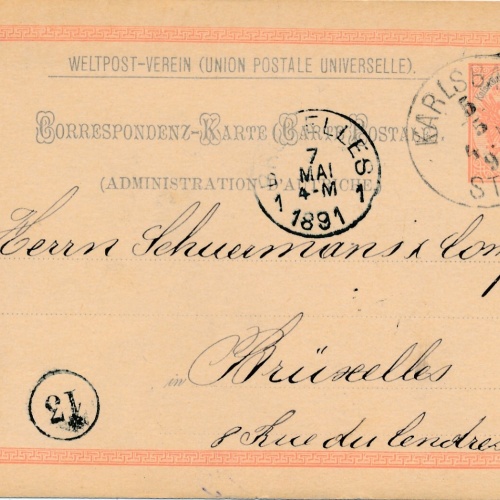 WELTPOST-VEREIN (UNION POSTALE UNIVERSELLE).
CORRESPONDENZ-KARTE (CARTE POSTALE
(ADMINISTRATION D'AUTRICHE)
KARLSB
5
5
ST
ELLES
7
MAI
4-M
1 1
1891
Herrn Schuermans & Com
in Bruxelles
8 Rue du Cendres
13